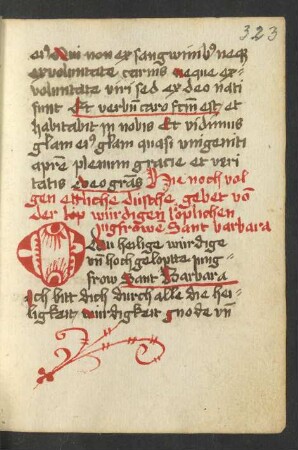 323
eiꝰ Qui non ex sangwinibꝰ neqꝫ
ex voluntate carnis neque ex
voluntate viri sed ex deo nati
sunt Et verbū caro fctm̄ est et
habitabit in nobis Et vidimus
glām eiꝰ glām quasi vnigeniti
apr̄e plenum gracie et veri
tatis Deo grās Hie noch vol
gen ettliche düsche gebet vō
der lop würdigen löplichen
Jngfrowe Sant barbara
O Du heilige würdige
vn̄ hoch geloptte jung
frow Sant Barbara
Ich bitt dich durch alle die hei
ligkeit würdigkeit gnode vn̄